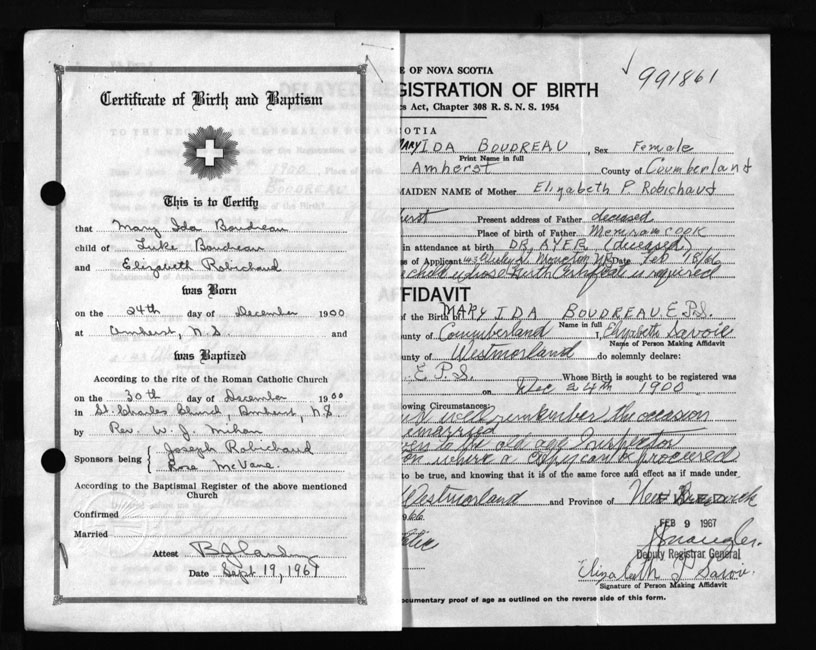 Certificate of Birth and Baptism
This is to Certify
that Mary Ida Boudreau
child of Luke Boudreau
and Elizabeth Robichaud
was Born
on the 24th day of December 1900
at Amherst, N.S. and
was Baptized
According to the rite of the Roman Catholic Church
on the 30th day of December 1900
in St. Charles Church, Amherst, N.S
by Rev. W. J. Mihan
Sponsors being Joseph Robichaud
Rose McVane.
According to the Baptismal Register of the above mentioned
Church
Confirmed
Married
Attest
Date Sept 19, 1961
E OF NOVA SCOTIA
991861
GISTRATION OF BIRTH
cs Act, Chapter 308 R. S. N. S. 1954
SCOTIA
MARY IDA BOUDREAU, Sex Female
Print Name in full
Amherst County of Coumberland
MAIDEN NAME of Mother Elizabeth P Robichaud
herst Present address of Father deceased
Place of birth of Father Memramcook
in attendance at birth DR. AYER (deceased)
s of Applicant 43 Wesley St Moncton NB Date Feb 18/66
child whose birth certificate is required
FFIDAVIT
of the Birth of MARY IDA BOUDREAU. E.P.S.
Name in full
unty of Coumberland I, Elizabeth Savoie
Name of Person Making Affidavit
unty of Westmorland do solemnly declare:
E.P.S. Whose Birth is sought to be registered was
on Dec 24th 1900
ollowing Circumstances:
well remember the occasion
married
to the old age Inspector
where a copy can be procured
to be true, and knowing that it is of the same force and effect as if made under
Westmorland and Province of New Brunswick
66
FEB 9 1967
Deputy Registrar General
Elizabeth P Savoie
Signature of Person Making Affidavit
ocumentary proof of age as outlined on the reverse side of this form.